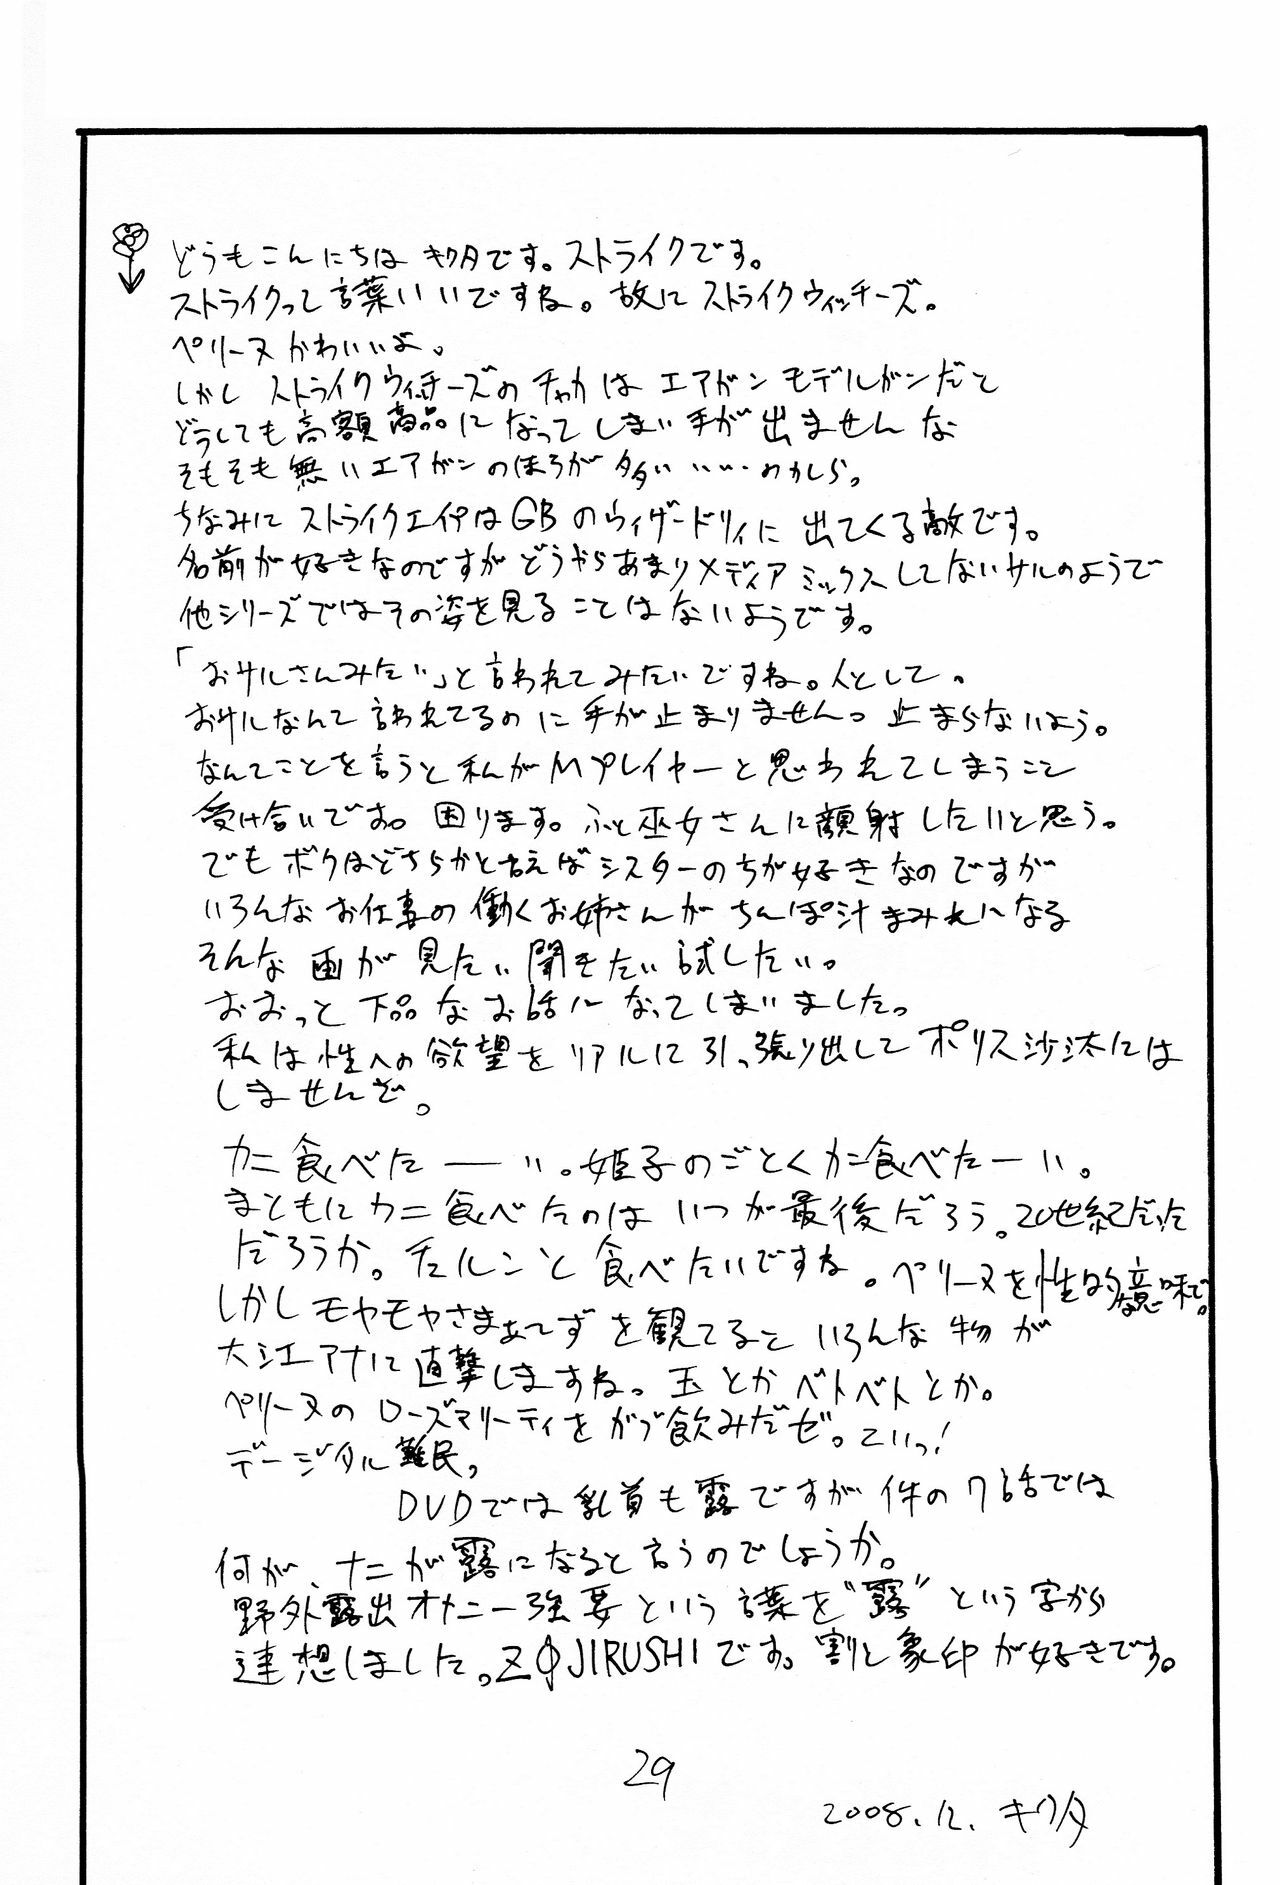 どうもこんにちは キクタです。ストライクです。
ストライクって言葉いいですね。故にストライクウィッチーズ。
ペリーヌかわいいよ。
しかし ストライクウィッチーズの チャカは エアガン モデルガンだと
どうしても高額商品になってしまい手が出ませんな
そもそも無いエアガンのほうが多い いい‥わかしら。
ちなみに ストライクエイプはGBのウィザードリィに出てくる敵です。
名前が好きなのですがどうやらあまりメディアミックスしてないサルのようで
他シリーズではその姿を見ることはないようです。
「おサルさんみたい」と言われてみたいですね。人として。
おサルなんて言われてるのに手が止まりません。止まらないよう。
なんてことを言うと私がMプレイヤーと思われてしまうこと
受け合いです。困ります。ふと巫女さんに顔射したいと思う。
でもボクはどちらかと言えばシスターのちが好きなのですが
いろんなお仕事の働くお姉さんがちんぽ汁まみれになる
そんな画が見たい聞きたい試したい。
おおっと下品なお話になってしまいました。
私は性への欲望をリアルに引っ張り出してポリス沙汰には
しませんぞ。
カニ食べたーい。姫子のごとくカニ食べたーい。
まともにカニ食べたのはいつが最後だろう。20世紀だった
だろうか。チュルンと食べたいですね。ペリーヌを性的な意味で。
しかしモヤモヤさまぁ〜ずを観てるといろんな物が
大江アナに直撃しますね。玉とかベトベトとか。
ペリーヌのローズマリーティをがぶ飲みだぜ。こいっ!
デージタル難民。
DVDでは乳首も露ですが件の7話では
何が、ナニが露になると言うのでしょうか。
野外露出オナニー強要という言葉を"露"という字から
連想しました。ZOJIRUSHIです。割と象印が好きです。
29
2008.12. キクタ